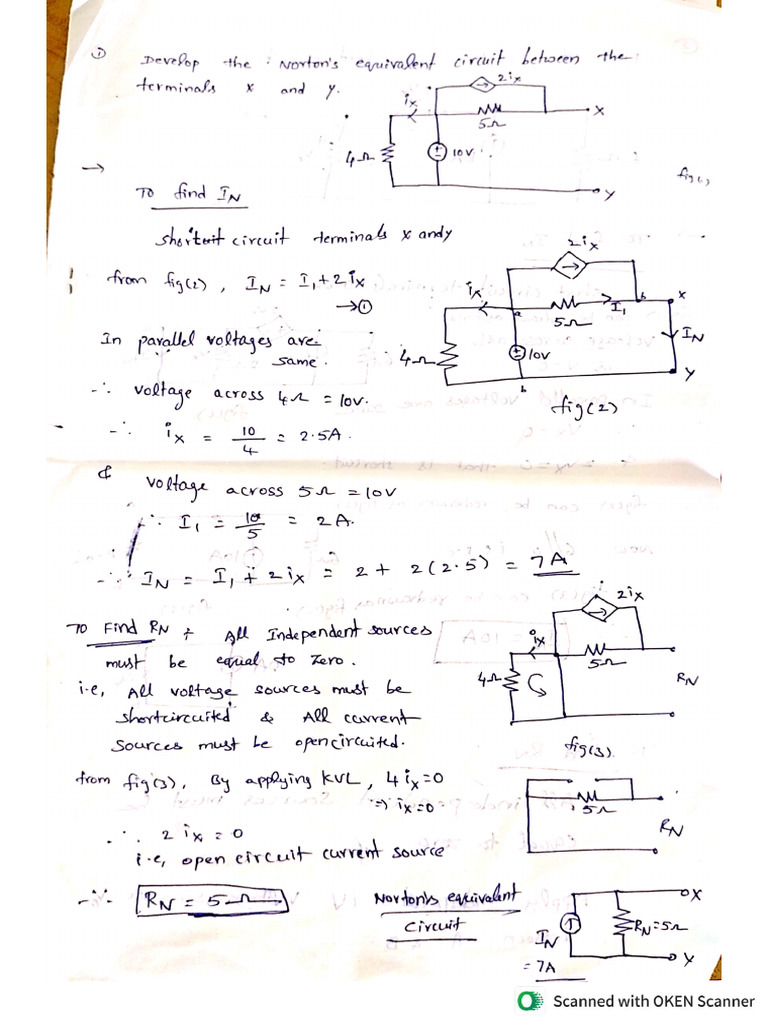 ① Develop the Norton's equivalent circuit between the
terminals x and y.
2ix
ix
5Ω
x
4Ω
10V
y
fig(1)
→
To find IN
short circuit terminals x and y
from fig(2), IN = I1 + 2ix
→①
In parallel voltages are
same.
∴ voltage across 4Ω = 10V.
∴ ix = 10/4 = 2.5A.
2ix
ix
a
5Ω
I1
b
x
4Ω
10V
IN
y
b
fig(2)
& voltage across 5Ω = 10V
∴ I1 = 10/5 = 2A.
∴ IN = I1 + 2ix = 2 + 2(2.5) = 7A
To Find RN ÷ All Independent sources
must be equal to zero.
i.e, All voltage sources must be
shortcircuited & All current
sources must be opencircuited.
2ix
ix
5Ω
4Ω
RN
fig(3).
from fig(3), By applying KVL, 4ix=0
⇒ ix=0
∴ 2ix = 0
i.e, open circuit current source
5Ω
RN
∴ RN = 5Ω
Norton's equivalent
circuit
x
RN=5Ω
IN
= 7A
y
Scanned with OKEN Scanner